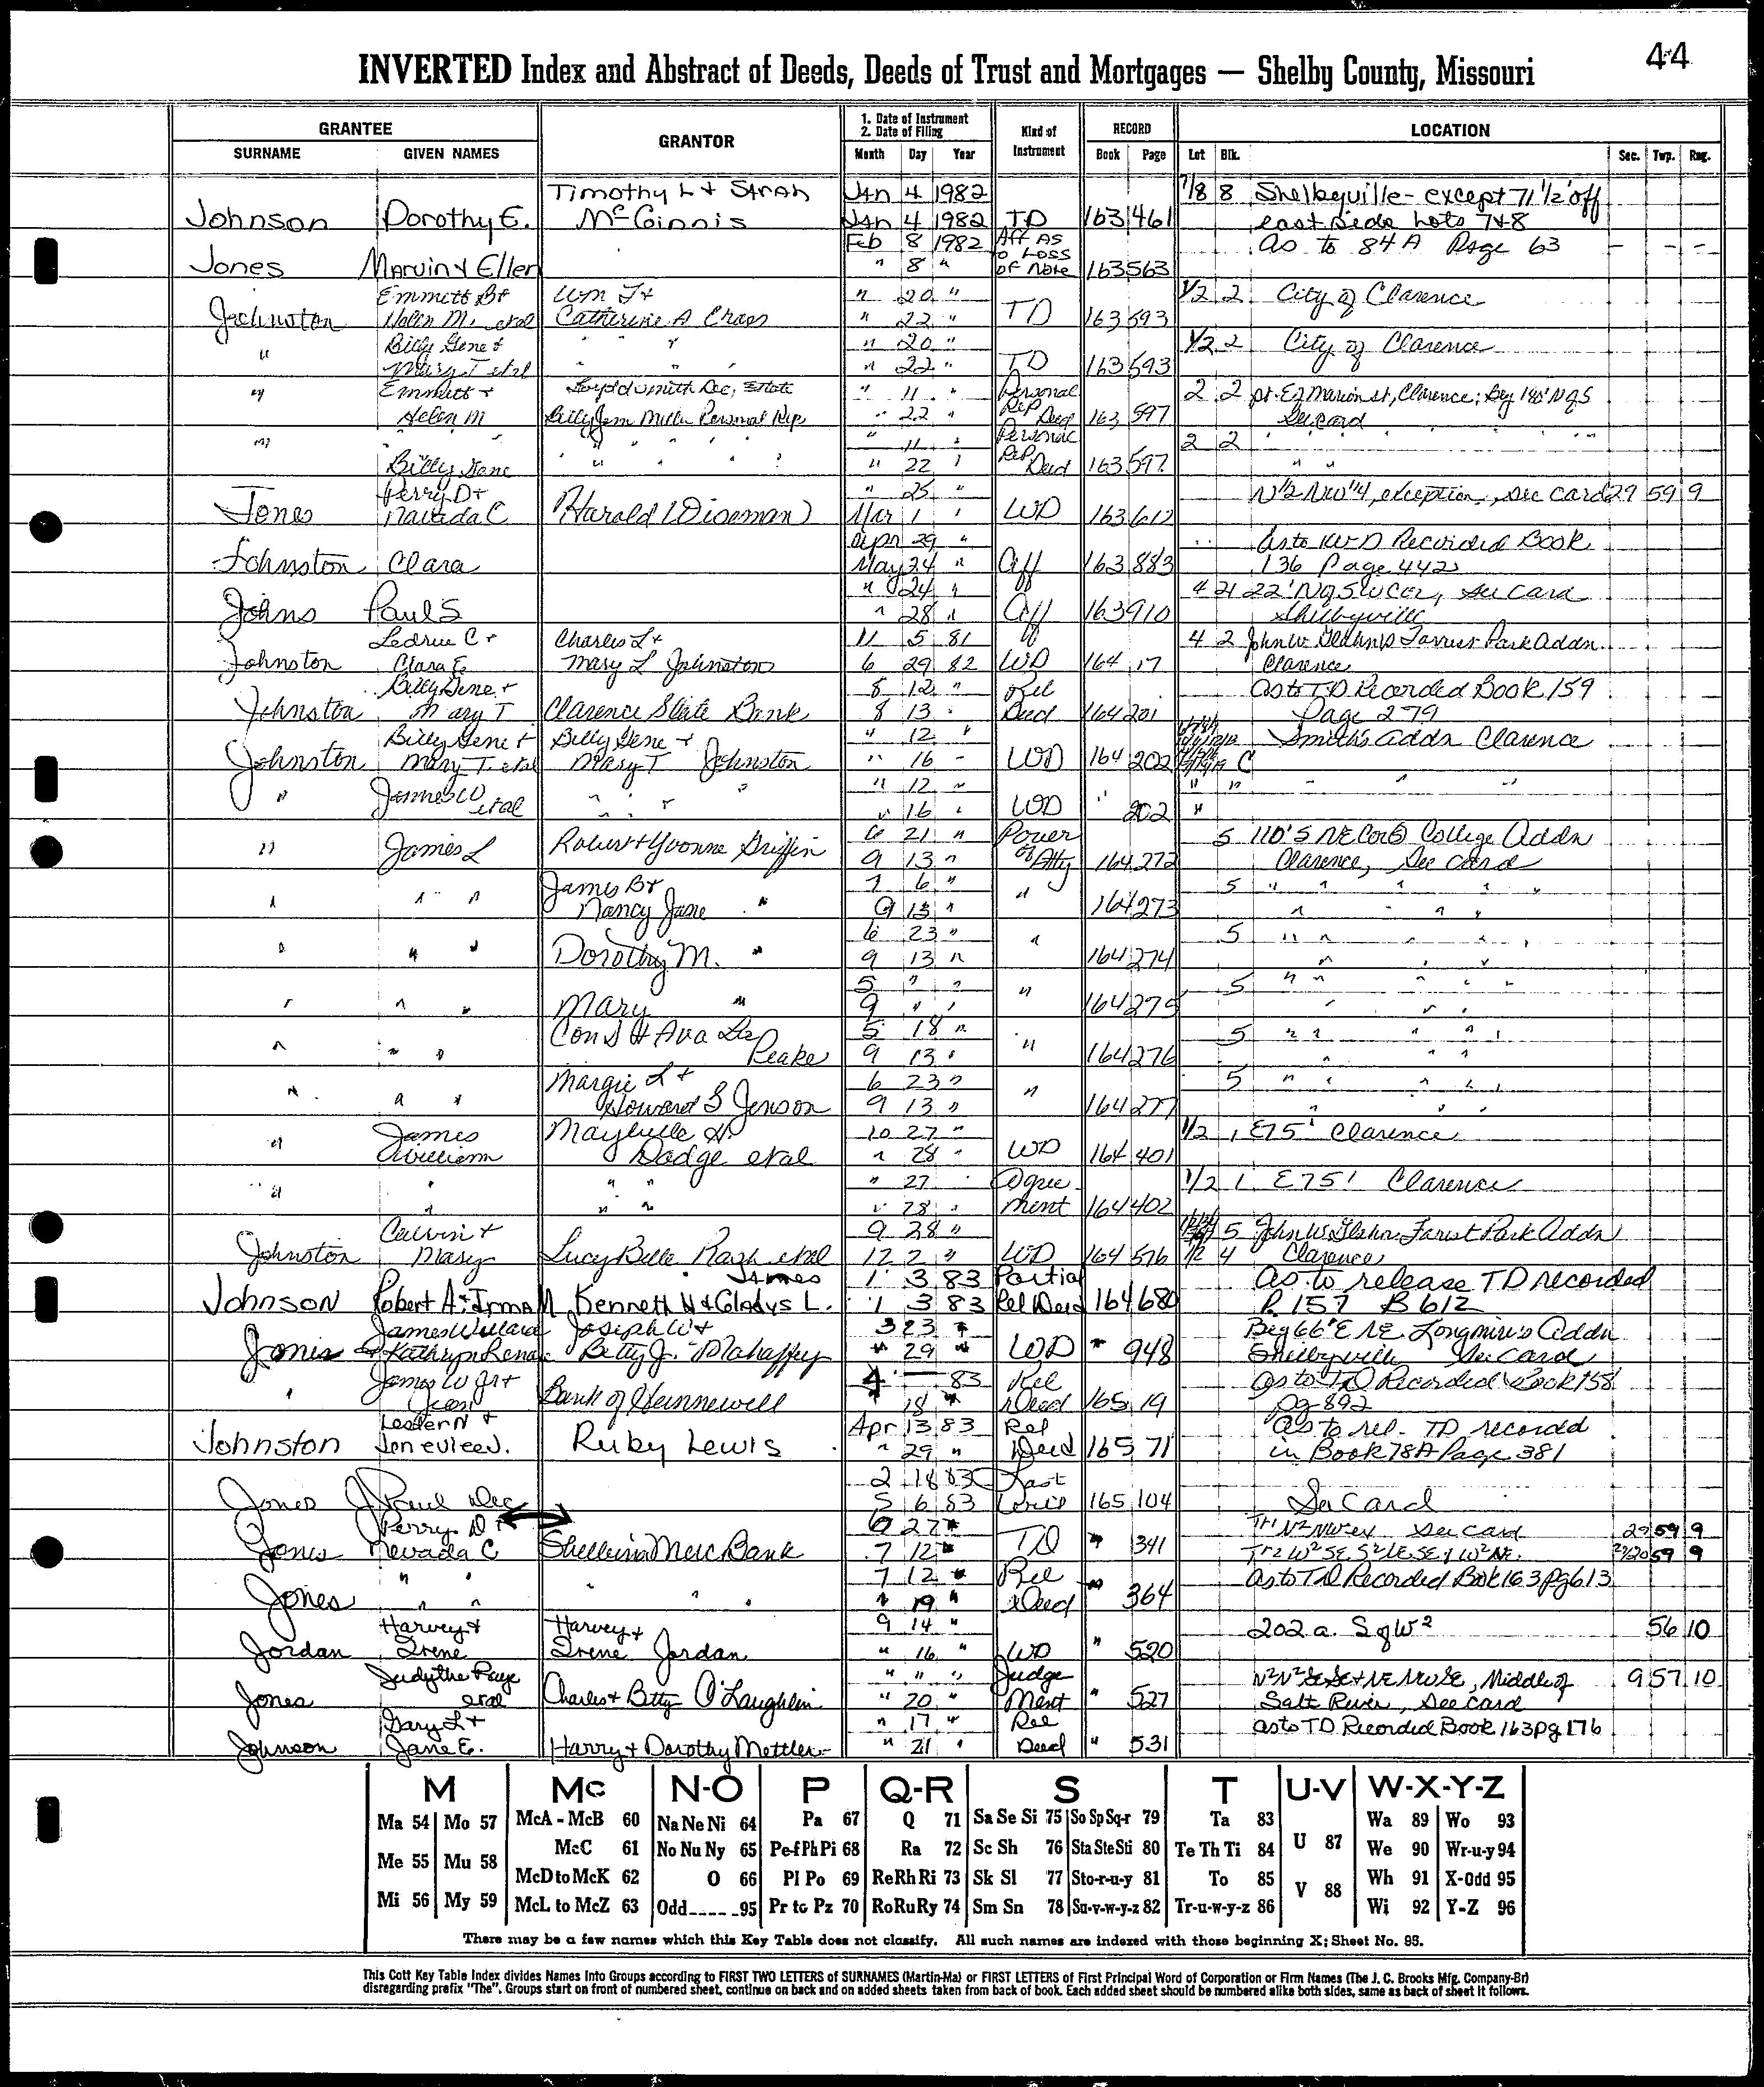 44
INVERTED Index and Abstract of Deeds, Deeds of Trust and Mortgages — Shelby County, Missouri
GRANTEE GRANTOR 1. Date of Instrument Kind of RECORD LOCATION
2. Date of Filing Instrument
SURNAME GIVEN NAMES Month Day Year Book Page Lot Blk. Sec. Twp. Rng.
Timothy L + Sarah Jan 4 1982 7/8 8 Shelbyville - except 71 1/2' off
Johnson Dorothy E. McGinnis Jan 4 1982 TD 163 461 east side Lots 7+8
Feb 8 1982 Aff As as to 84 A Page 63 - - -
to Loss
Jones Marvin + Ellen " 8 " of Note 163 563
Emmett B + Wm J + " 20 " 1/2 2 City of Clarence
Johnston Helen M. etal Catherine A " 22 " TD 163 593
" Billy Gene + " " " " 20 " 1/2 2 City of Clarence
Mary T etal " " " " 22 " TD 163 593
" Emmett + Smith Dec, Estate " 11 " Personal 2 2 pt. Marion st, Clarence; Beg 180' N of S
Helen M Personal Rep " 22 " Rep Deed 163 597 See card
" " " " " " 11 " Personal 2 2 " " "
Billy Gene " " " " " " 22 " Rep Deed 163 597 " "
Perry D + " 25 " N 1/2 NW 1/4, exception, see card 29 59 9
Jones Nevada C Harold Wiseman Mar 1 " WD 163 612
Apr 29 " As to WD Recorded Book
Johnston Clara May 24 " Aff 163 883 136 Page 442
" 24 " 4 21 22' N of SW Cor, See Card
Johns Paul S " 28 " Aff 163 910 Shelbyville
Ledrue C + Charles L + 11 5 81 4 2 John W. Forrest Park Addn
Johnston Clara E. Mary L Johnston 6 29 82 WD 164 17 Clarence
Billy Gene + 8 12 " Rel as to TD Recorded Book 159
Johnston Mary T Clarence State Bank 8 13 " Deed 164 201 Page 279
Billy Gene + Billy Gene + " 12 " Smith's addn Clarence
Johnston Mary T. etal Mary T Johnston " 16 " WD 164 202 C
" James W " " " " " 12 " " " " " "
etal " " " 16 " WD " 202 "
" James L Robert + Yvonne Griffin 6 21 " Power 5 110' S NE Cor College Addn
9 13 " of Atty 164 272 Clarence, See Card
" " " James B + 7 6 " " 5 " " " " "
Nancy Jane " 9 13 " 164 273 " " "
" " " 6 23 " " 5 " " " " "
Dorothy M. " 9 13 " 164 274 " " "
" " " 5 " " " 5 " " " " "
Mary " 9 " " 164 275 " " "
" " " Con S + Ava Lee 5 18 " " 5 " " " " "
Peake 9 13 " 164 276 " "
" " " Margie L + 6 23 " " 5 " " " " "
Howard S Jenson 9 13 " 164 277 " " "
" James Maybelle H. 10 27 " 1/2 1 E 75' Clarence
William Dodge etal " 28 " WD 164 401
" " " " " 27 " Agree- 1/2 1 E 75' Clarence
" " " " 28 " ment 164 402
Calvin + 9 28 " 5 John W. Forest Park Addn
Johnston Mary Lucy Belle etal 12 2 " WD 164 576 1/2 4 Clarence
James 1 3 83 Partial As to release TD recorded
Johnson Robert A + Irma M Kennett N + Gladys L. 1 3 83 Rel Deed 164 680 P 157 B 612
James Willard Joseph W + 3 23 " Beg 66' E NE Longmire's Addn
Jones + Kathryn Betty J. Mahaffey " 29 " WD " 948 Shelbyville See Card
" James W Jr + 4 — 83 Rel as to TD Recorded Book 158
Jean Bank of Hunnewell " 18 " Deed 165 19 Pg 892
Lester N + Apr 13 83 Rel As to rel. TD recordd
Johnston Ruby Lewis " 29 " Deed 165 71 in Book 78A Page 381
2 18 83 Last
Jones J Paul Dec 5 6 83 165 104 See Card
Perry D + 6 27 " Tr 1 N2 NW ex See card 29 59 9
Jones Nevada C Shelbina Merc Bank 7 12 " TD " 341 Tr 2 W2 SE, 59 9
" " 7 12 " Rel as to TD Recorded Book 163 Pg 613
Jones " " " " " 19 " Deed " 364
Harvey + Harvey + 9 14 " 202 a. S of W2 56 10
Jordan Irene Irene Jordan " 16 " WD " 520
Judythe Paye " " " Judge N2 N2 SE SE + NE NW SE, Middle of 9 57 10
Jones etal Charles + Betty O'Laughlin " 20 " Ment " 527 Salt River, See card
Gary L + " 17 " Rel as to TD Recorded Book 163 pg 176
Johnson Jane E. Harry + Dorothy Mettler " 21 " Deed " 531
M Mc N-O P Q-R S T U-V W-X-Y-Z
Ma 54 Mo 57 McA - McB 60 Na Ne Ni 64 Pa 67 Q 71 Sa Se Si 75 So Sp Sq-r 79 Ta 83 U 87 Wa 89 Wo 93
Me 55 Mu 58 McC 61 No Nu Ny 65 Pe-f Ph Pi 68 Ra 72 Sc Sh 76 Sta Ste Sti 80 Te Th Ti 84 We 90 Wr-u-y 94
McD to McK 62 O 66 Pl Po 69 Re Rh Ri 73 Sk Sl 77 Sto-r-u-y 81 To 85 V 88 Wh 91 X-Odd 95
Mi 56 My 59 McL to McZ 63 Odd-----95 Pr to Pz 70 Ro Ru Ry 74 Sm Sn 78 Su-v-w-y-z 82 Tr-u-w-y-z 86 Wi 92 Y-Z 96
There may be a few names which this Key Table does not classify. All such names are indexed with those beginning X; Sheet No. 95.
This Cott Key Table Index divides Names Into Groups according to FIRST TWO LETTERS of SURNAMES (Martin-Ma) or FIRST LETTERS of First Principal Word of Corporation or Firm Names (The J. C. Brooks Mfg. Company-Br)
disregarding prefix "The". Groups start on front of numbered sheet, continue on back and on added sheets taken from back of book. Each added sheet should be numbered alike both sides, same as back of sheet it follows.